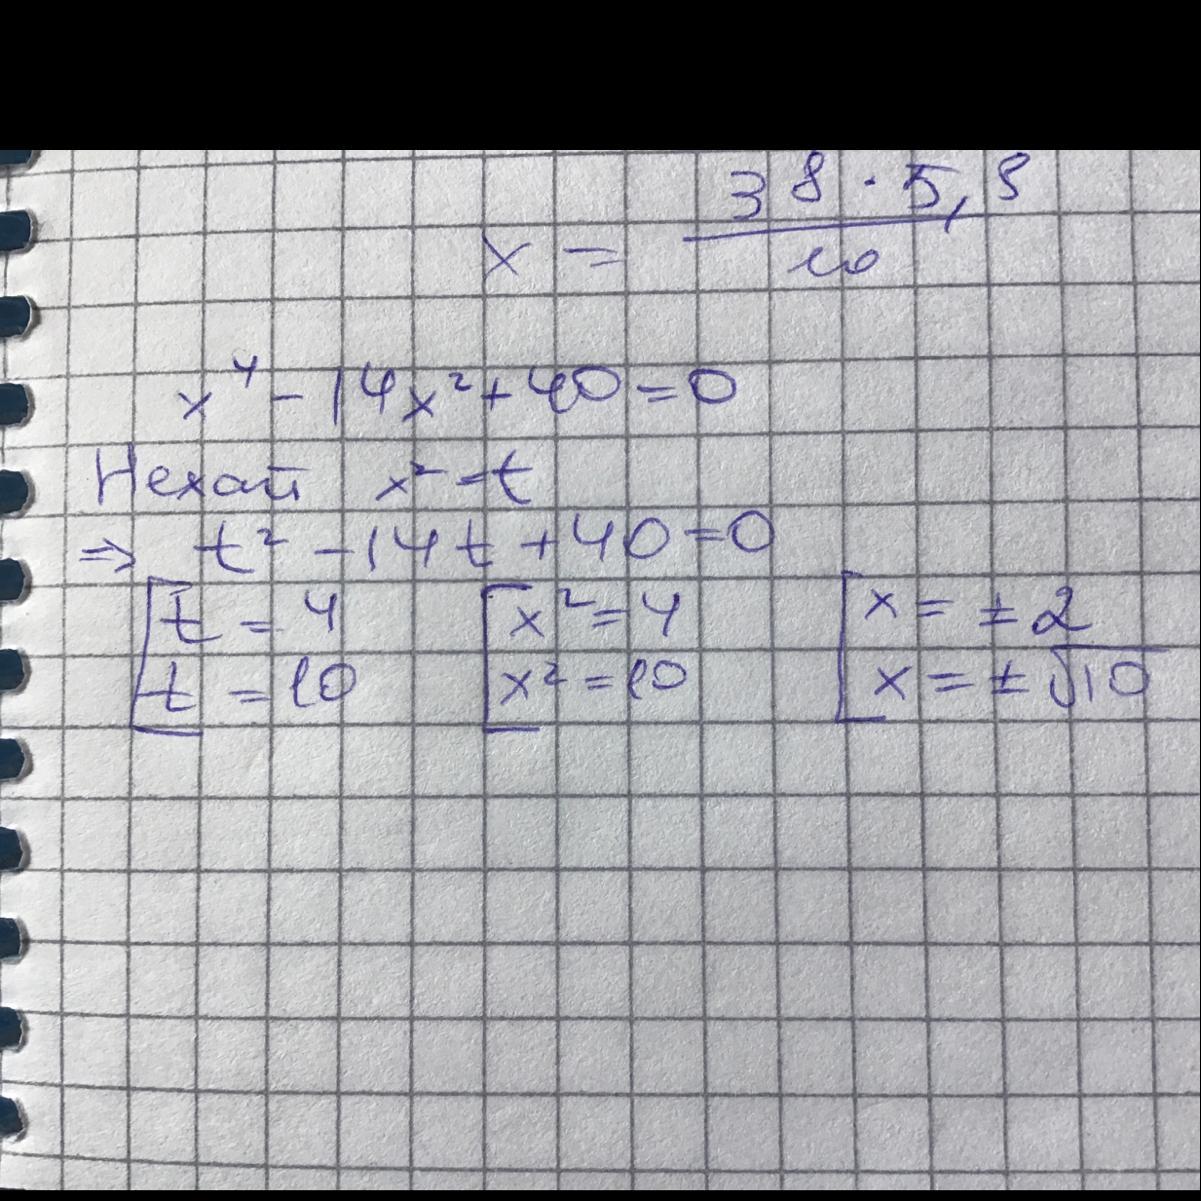 x = 38 · 5,8 / 10
x⁴ - 14x² + 40 = 0
Нехай x² = t
⇒ t² - 14t + 40 = 0
[ t = 4 [ x² = 4 [ x = ± 2
[ t = 10 [ x² = 10 [ x = ± √10